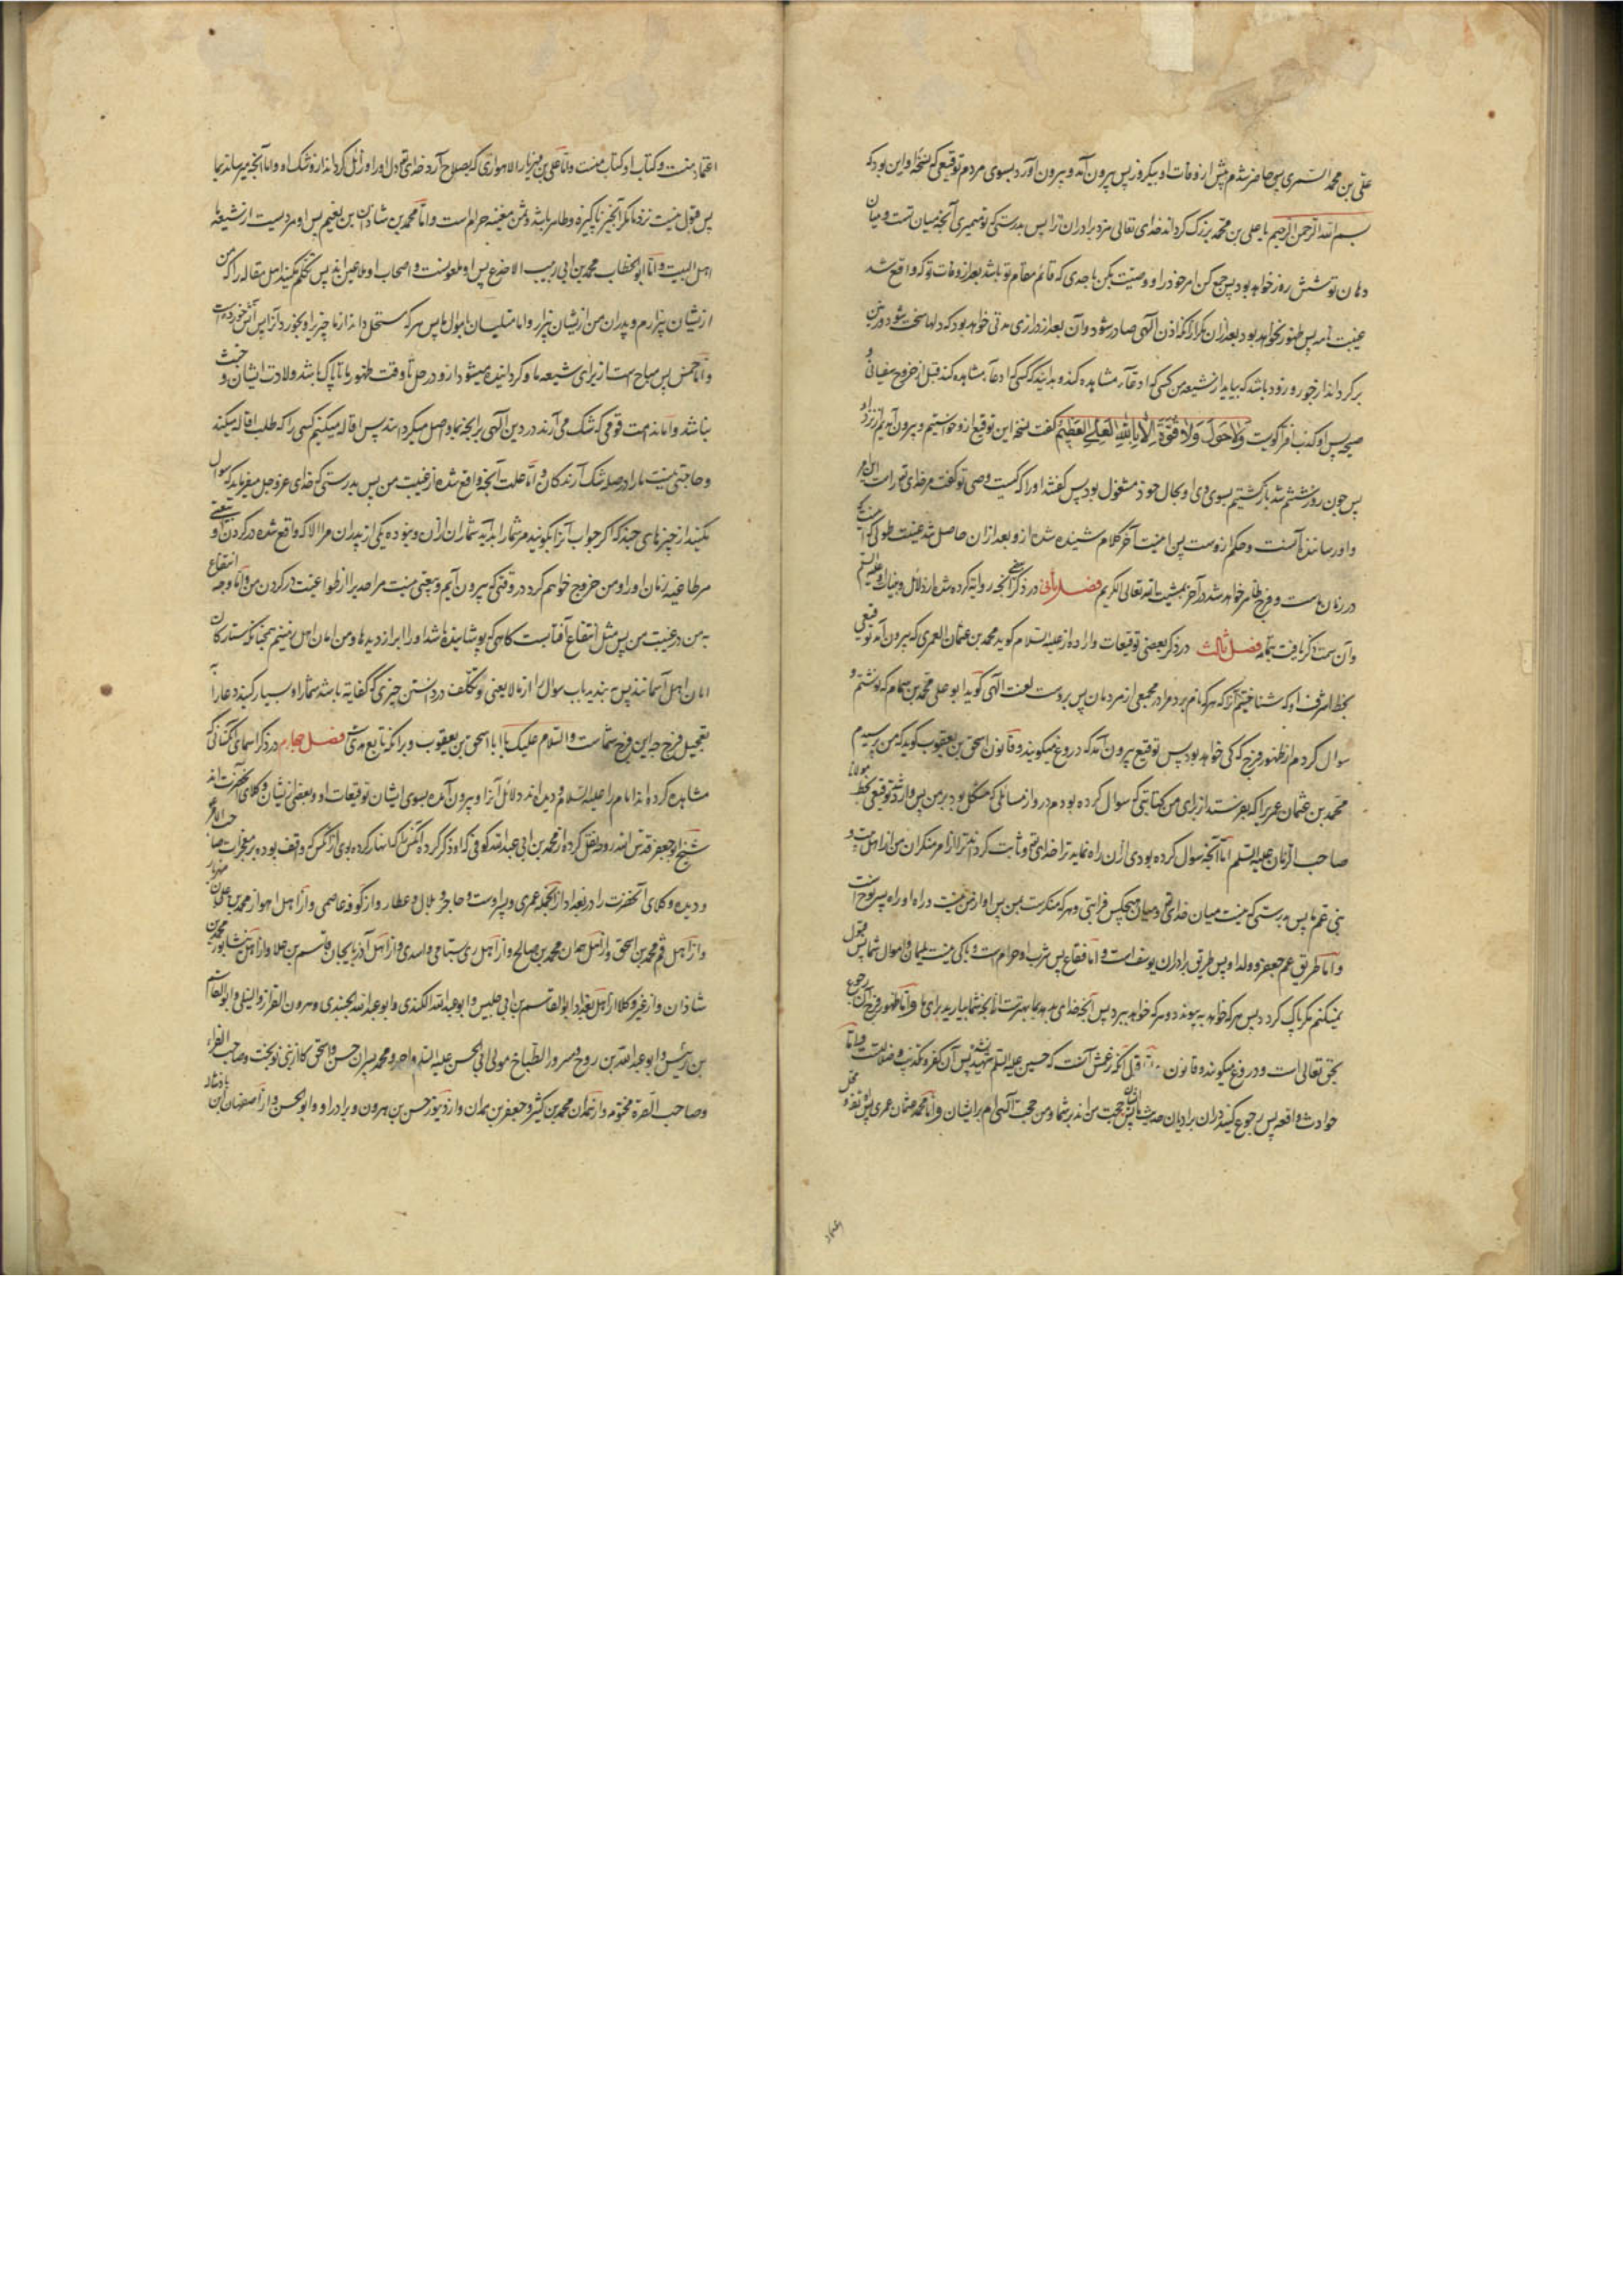 علی بن محمد السمری پس حاضر شدم پیش از وفات او بیکروز پس بیرون آمد و بیرون آورد بسوی مردم توقیعی که نسخهٔ او این بود که
بسم الله الرحمن الرحیم یا علی بن محمد بزرگ گرداند خدای تعالی مزد برادران ترا پس بدرستی که تو میمیری آنچه میان تست و میان
دمان تو شش روز خواهد بود پس جمع کن امر خود را و وصیت مکن باحدی که قائم مقام تو باشد بعد از وفات تو که واقع شد
غیبت تامه پس ظهور نخواهد بود بعد از آن مگر آنکه اذن الهی صادر شود و آن بعد از درازی مدتی خواهد بود که دلها سخت شود و زمین
بر گرداند از جور و زود باشد که بیاید از شیعه من کسی که ادعاء مشاهده کند و بدانید که کسی که ادعاء مشاهده کند قبل از خروج سفیانی و
صیحه پس او کذاب مفتر گویست وَلاحَولَ وَلاقُوَّةَ اِلاّ بِاللهِ العَلِیِّ العَظِیمِ گفت نسخه این توقیع از و خواستیم و بیرون آمدیم از نزد او
پس چون روز ششم شد باز گشتیم بسوی وی و او بحال خود مشغول بود پس گفتند او را که کیست وصی تو گفت مر خدای را امریست
و او رساننده آنست و حکم از وست پس اینست آخر کلام شنیده شده از و بعد از آن حاصل شد غیبت طولی که
در زمان ماست و فرج ظاهر خواهد شد در آخر بمشیت الله تعالی الکریم فصل ثانی در ذکر آنچه روایة کرده شده از دلائل و بینات او علیه السلم
و آن سمت ذکر یافت بتمامه فصل ثالث در ذکر بعضی توقیعات وارده از و علیه السلام گوید محمد بن عثمان العمری که بیرون آمد توقیعی
بخط اشرف او که شناختیم آنرا که هر که نام برد مرا در مجمعی از مردمان پس بروست لعنت الهی گوید ابو علی محمد بن همام که نوشتم و
سوال کردم از ظهور فرج که کی خواهد بود پس توقیع بیرون آمد که دروغ میگویند وقاتون اسحق بن یعقوب گوید که من پرسیدم
محمد بن عثمان عمری را که بفرستد از برای من کتابتی که سوال کرده بودم در و از مسائلی که مشکل بود بر من پس وارد شد توقیعی بخط مولانا
صاحب الزمان علیه السلم اما آنچه سوال کرده بودی از آن راه نماید ترا خدای تع و ثابت گرداند ترا از امر منکران من از اهل بیت و
بنی عم ما پس بدرستی که نیست میان خدای تع و میان هیچکس قرابتی و هر که منکرست بمن پس او از من نیست و راه او راه پسر نوح است
و اما طریق عم جعفر و ولد او پس طریق برادران یوسف است و اما فقاع پس شرب او حرام است و باکی نیست بسلمان و اموال شما پس قبول
نمیکنم مگر پاک گردد پس هر که خواهد به پیوندد و هر که خواهد ببرد پس آنچه خدای بدهد بما بهترست از آنچه شما بیارید برای ما و اما ظهور فرج آن رجوع
بحق تعالی است و دروغ میگویند وقاتون و اما قول آنکه زعمش آنست که حسین علیه السلم شهید نشده پس آن کفر و تکذیب و ضلالت و اما
حوادث واقعه پس رجوع کنید در آن براویان حدیث ما پس ایشان حجت من اند بر شما و من حجت الهی ام بر ایشان و اما محمد عثمان عمری پس ثقه و محل
اعتماد
اعتماد منست و کتاب او کتاب منست و اما علی بن مهزیار الاهوازی که بصلاح آرد خدای تع دل او را و زائل گرداند از و شک او و اما آنچه میرساند بما
پس قبول نیست نزد ما مگر آنچیز پاکیزه و طاهر باشد و ثمن مغنیه حرام است و اما محمد بن شاذان بن نعیم پس او مردیست از شیعه ما
اهل البیت و اما ابو الخطاب محمد بن ابی زینب الاجدع پس او ملعونست و اصحاب او ملاعین اند پس تکلم مکنید اهل مقاله را که من
از ایشان بیزارم و پدران من از ایشان بیزار و اما متلبسان باموال ما پس هر که مستحل داند از ما چیزی را و بخورد آنرا پس آتش خورده است
و اما خمس پس مباح است از برای شیعه ما و گردانیده میشود از و در حل تا وقت ظهور ما تا پاک باشد ولادت ایشان و خبیث
نباشد و اما ندامت قومی که شک می آرند در دین الهی بر آنچه بما وصل میکرده اند پس اقاله میکنیم کسی را که طلب اقاله میکند
و حاجتی نیست ما را در صله شک آرندگان و اما علت آنچه واقع شده از غیبت من پس بدرستی که خدای عز و جل میفرماید که سوال
مکنید از چیزهای چند که اگر جواب آنرا بگویند مر شما را بد آید شما را از آن و نبوده یکی از پدران مرا الا که واقع شده در گردن او بیعتی
مر طاغیه زمان او را و من خروج خواهم کرد در وقتی که بیرون آیم و بیعتی نیست مر احدی را از طواغیت در گردن من و اما وجه انتفاع
به من در غیبت من پس مثل انتفاع آفتابست گاهی که پوشاننده باشد او را ابر از دیدها و من امان اهل زمینم همچنانکه ستارگان
امان اهل آسمانند پس به بندید باب سوال را از مالا یعنی و تکلف در دانستن چیزی که کفایه باشد شما را و بسیار کنید دعا را به
تعجیل فرج چه این فرج شماست و السلام علیک یا ابا اسحق بن یعقوب و بر آنکه تابع هدی است فصل چهارم در ذکر اسمای آنکسانی که
مشاهده کرده اند امام را علیه السلام و دیده اند دلائل آنرا و بیرون آمده بسوی ایشان توقیعات او و بعضی از ایشان وکلای آنحضرت اند
شیخ ابو جعفر قدس الله روحه نقل کرده از محمد بن ابی عبد الله کوفی که او ذکر کرده آنکس را که انتها کرده بوی از آنکس که واقف بوده بر معجزات صاحب الامر
و دیده وکلای آنحضرت را در بغداد از آنجمله عمری و پسر اوست و حاجز و بلال و عطار و از کوفه عاصمی و از اهل اهواز محمد بن ابراهیم بن مهزیار
و از اهل قم محمد بن اسحق و از اهل همدان محمد بن صالح و از اهل ری بسامی و اسدی و از اهل آذربایجان قاسم بن علا و از اهل نیشابور محمد بن
شاذان و از غیر وکلا از اهل بغداد ابو القاسم بن ابی حلیس و ابو عبد الله الکندی و ابو عبد الله الجنیدی و هرون القزاز و النیلی و ابو القاسم
بن رئیس و ابو عبد الله بن فروخ و مسرور الطباخ مولی ابی الحسن علیه السلم و احمد و محمد پسران حسن و اسحق کاتب از بنی نوبخت و صاحب الفراء
و صاحب الصرة مختومه و از همدان محمد بن کشمرد و جعفر بن همدان و از دینور حسن بن هرون و برادر او و ابو الحسن و از اصفهان ابن